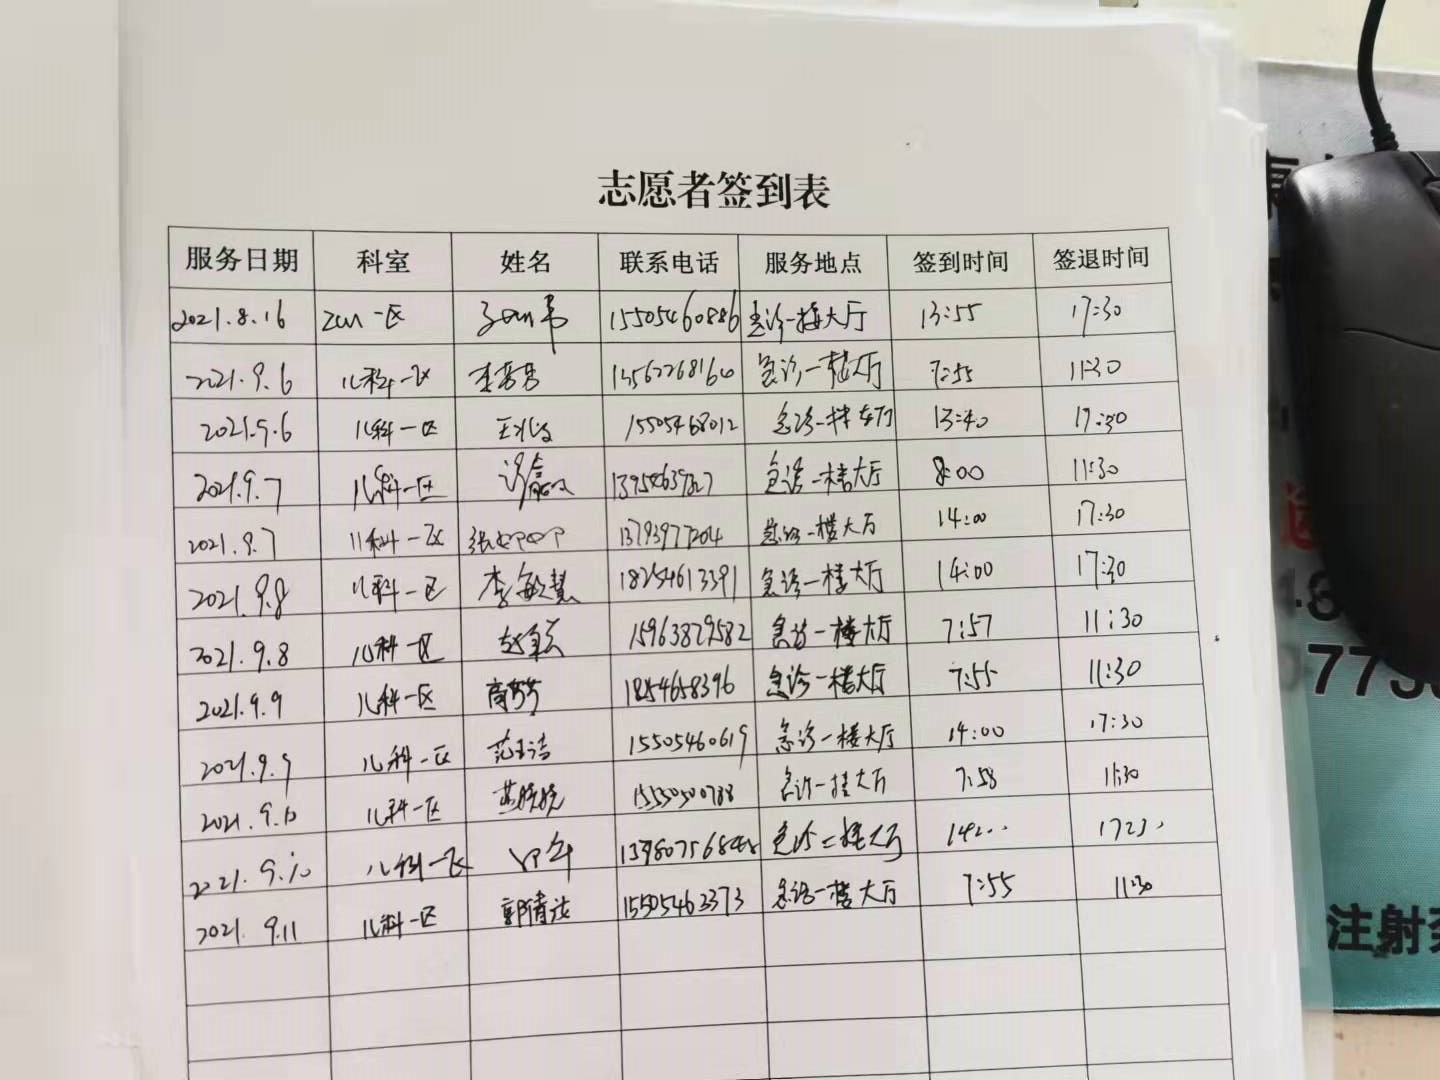 志愿者签到表
服务日期 科室 姓名 联系电话 服务地点 签到时间 签退时间
2021.8.16 一区 15505460886 急诊一楼大厅 13:55 17:30
2021.9.6 儿科一区 急诊一楼大厅 7:55 11:30
2021.9.6 儿科一区 15505468012 急诊一楼大厅 13:40 17:30
2021.9.7 儿科一区 急诊一楼大厅 8:00 11:30
2021.9.7 儿科一区 13793977204 急诊一楼大厅 14:00 17:30
2021.9.8 儿科一区 李敏慧 18254613391 急诊一楼大厅 14:00 17:30
2021.9.8 儿科一区 15963829582 急诊一楼大厅 7:57 11:30
2021.9.9 儿科一区 急诊一楼大厅 7:55 11:30
2021.9.9 儿科一区 范玉洁 15505460619 急诊一楼大厅 14:00 17:30
2021.9.10 儿科一区 急诊一楼大厅 7:58 11:30
2021.9.10 儿科一区 楼大厅
2021.9.11 儿科一区 15505463373 急诊一楼大厅 7:55 11:30
注射